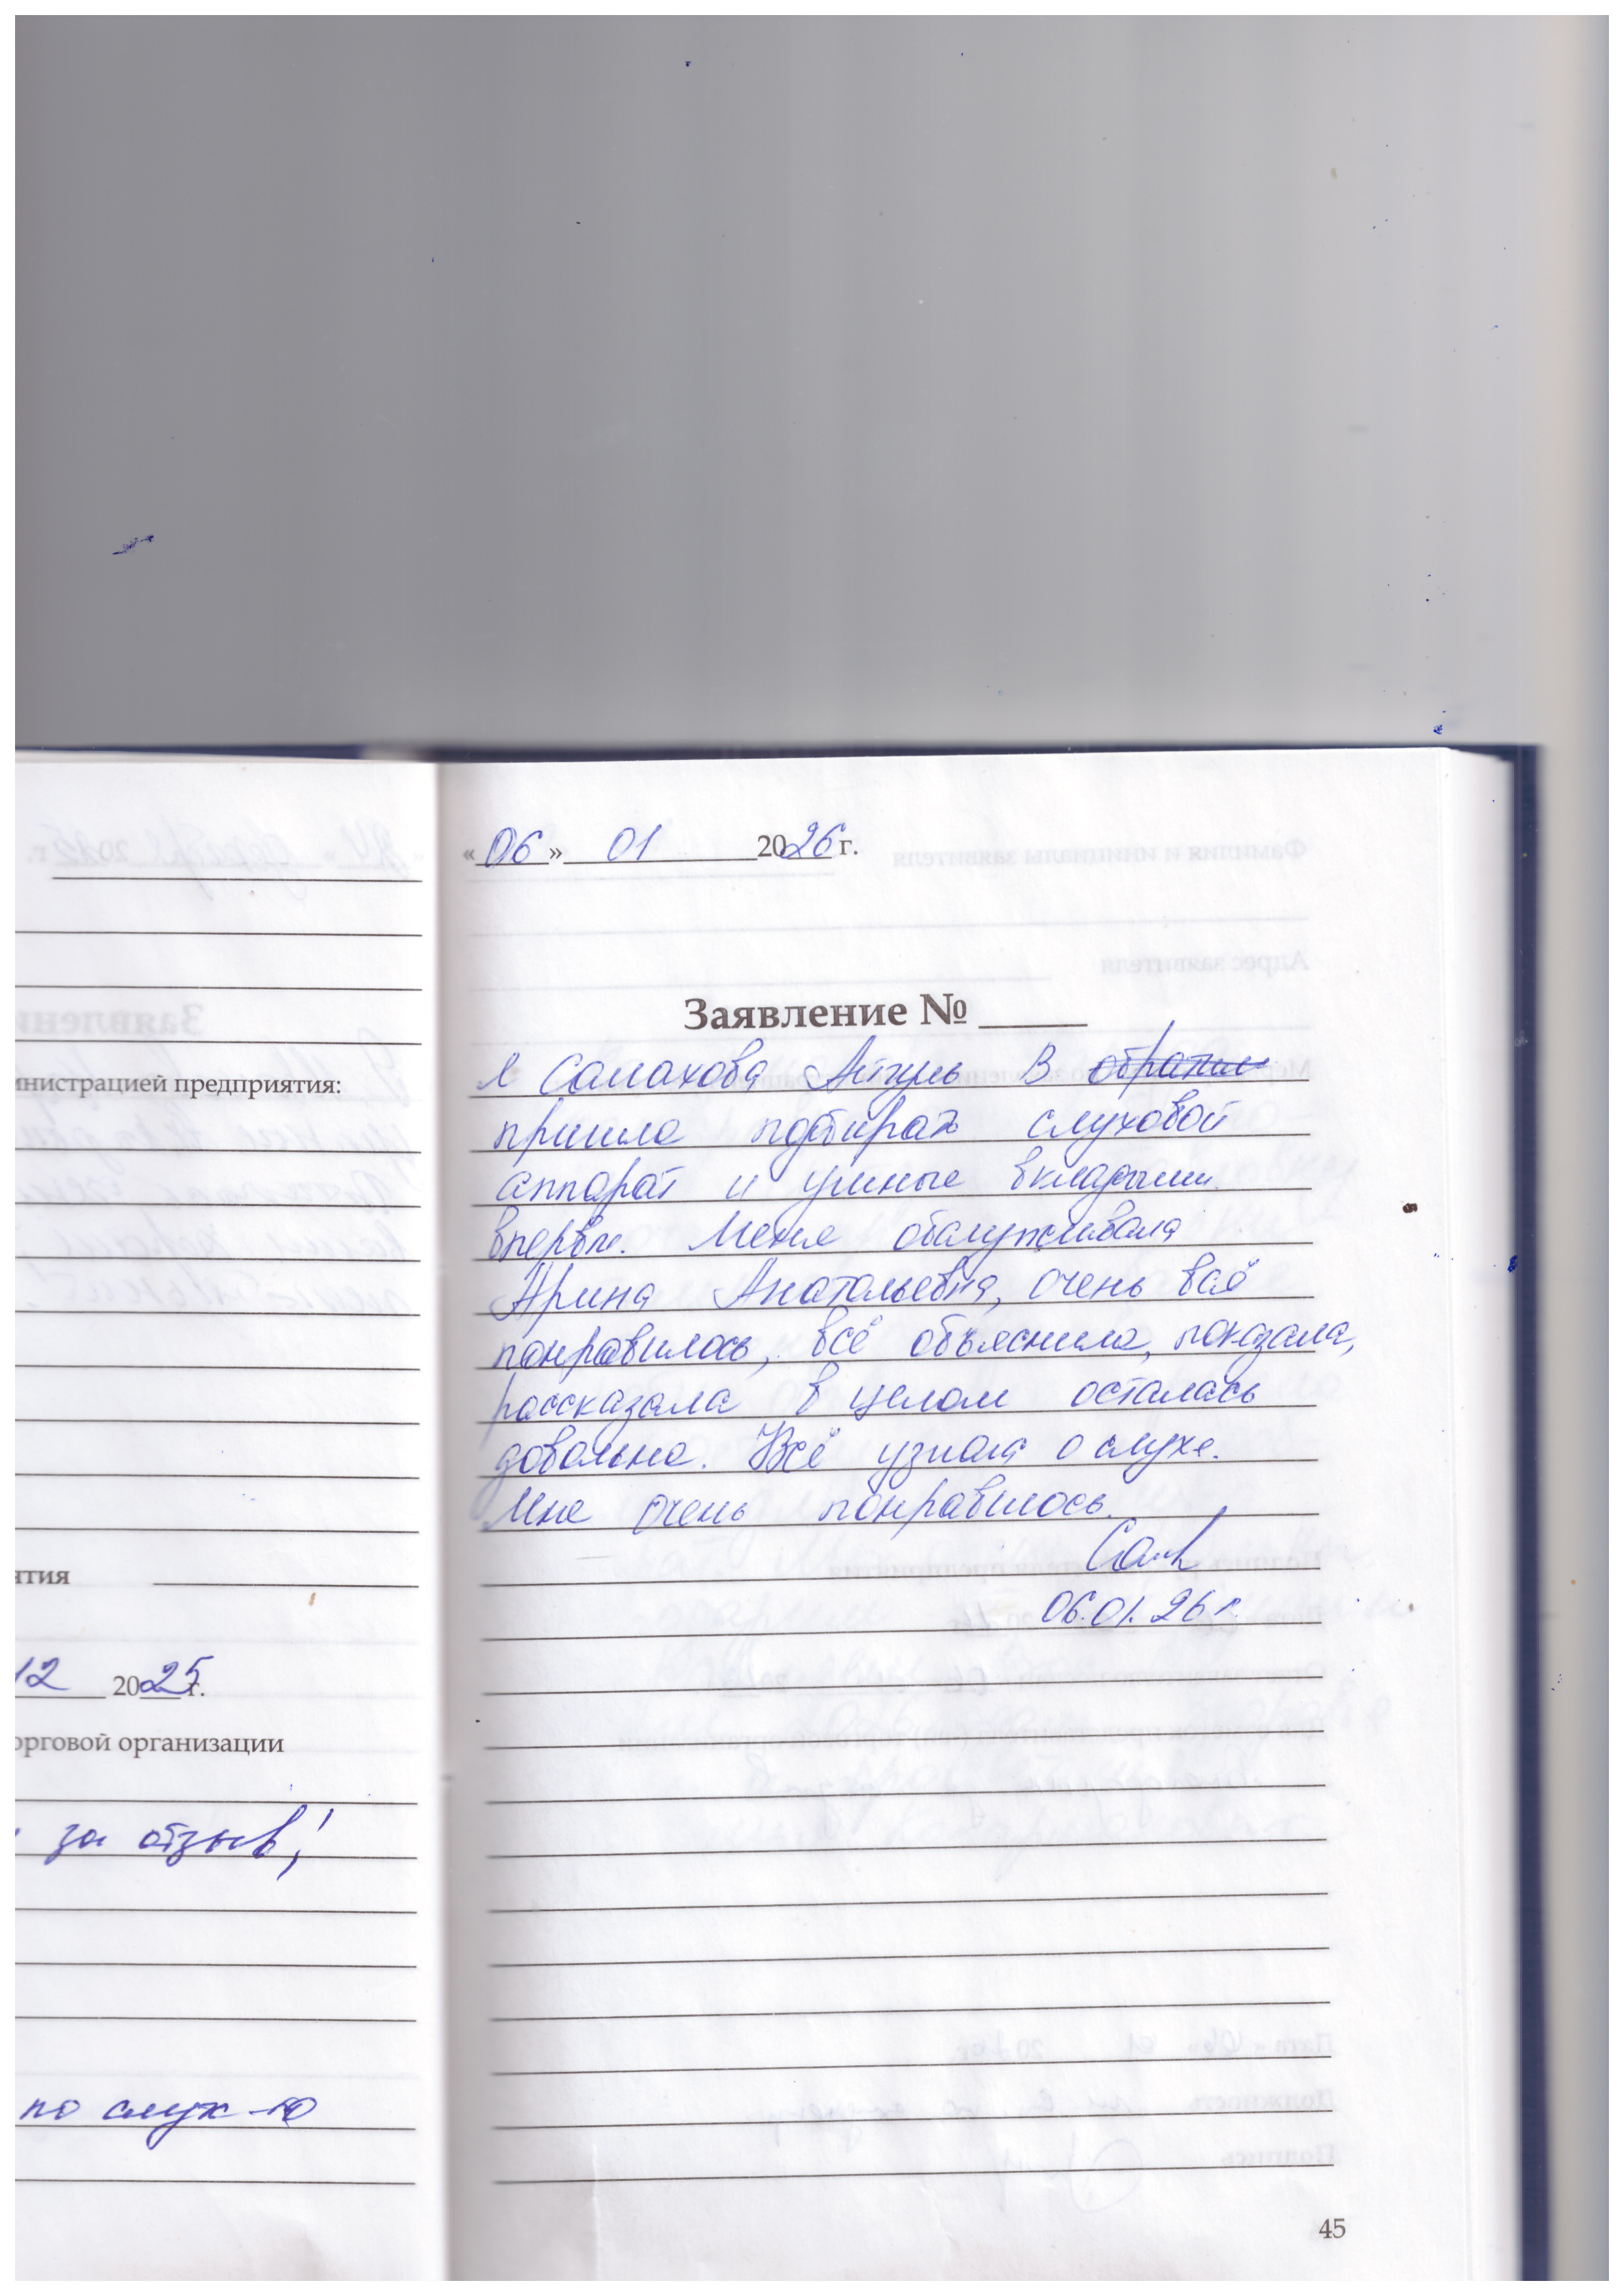 инистрацией предприятия:
ятия
12 2025 г.
орговой организации
за отзыв!
по слух-ю
«06» 01 2026 г.
Заявление №
Я Салахова Айгуль В
пришла подбирать слуховой
аппарат и ушные вкладыши
впервы. Меня обслуживала
Арина Анатольевна, очень всё
понравилось, всё объяснила, показала,
рассказала в целом осталась
довольна. Всё узнала о слухе.
Мне очень понравилось.
06.01.26 г.
45